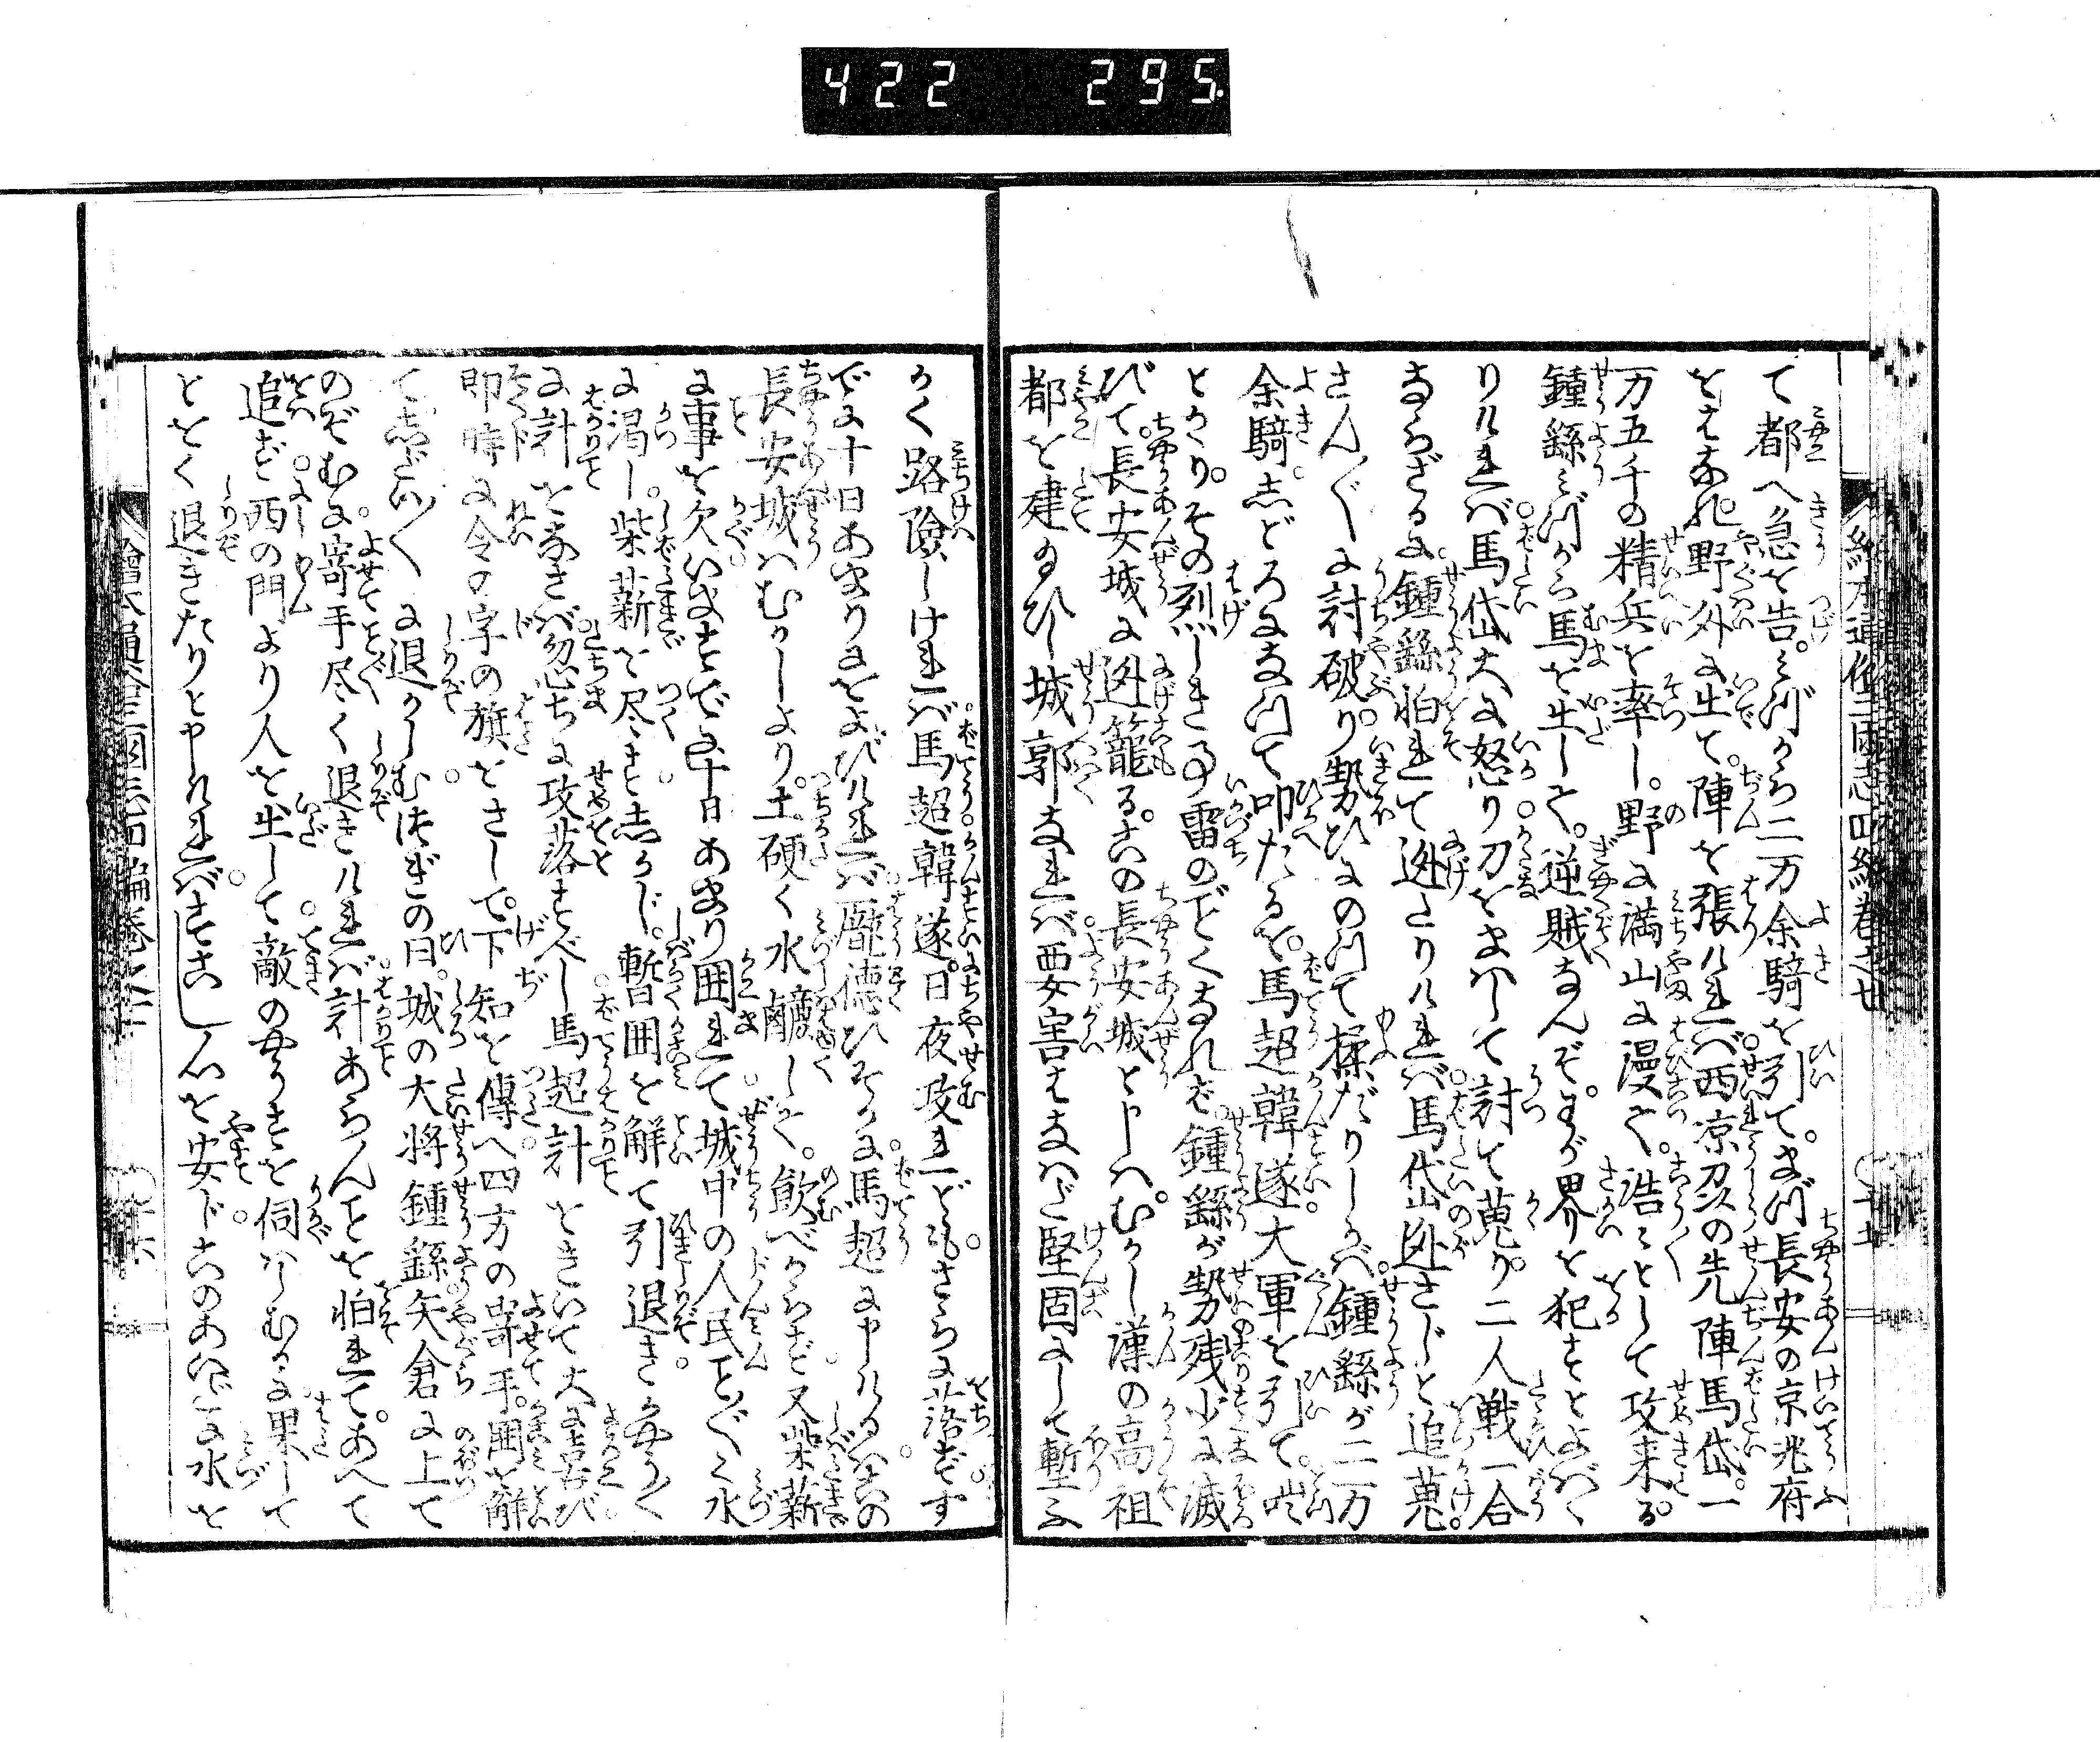 422 295.
て都へ急を告。みづから二万余騎を引て。まづ長安の京兆府
をはなれ。野外に出て。陣を張ければ。西凉刕の先陣馬岱。一
万五千の精兵を率し。野に満山に漫て。浩々として攻来る。
鍾繇みづから馬を出して。逆賊なんぞ。わが界を犯すとよばく
りければ。馬岱大に怒り。刀をまはして討て蒐り。二人戦一合
ならざるに。鍾繇怕れて迯たりければ。馬代迯さじと追蒐。
さん〴〵に討破り。勢ひにのつて揉だりしかば。鍾繇が二万
余騎。しどろになつて叩たるを。馬超韓遂大軍を引て。咄
とかゝり。その烈しきる事雷のごとくなれば。鍾繇が勢残少に滅
びて。長安城に迯籠る。この長安城と申は。むかし漢の高祖
都を建給ひし城郭なれば。要害はなはだ堅固にして塹ふ
かく路険しければ。馬超韓遂。日夜攻れども。さらに落ず。す
でに十日あまりにをよびければ。龐徳ひそかに。馬超に申けるはこの
長安城はむかしより。土硬く水鹻して。飲べからず。又柴薪
に事を欠。いますでに十日あまり囲れて。城中の人民こと〴〵く水
に渇し。柴薪を尽すとしかじ。暫囲を解て引退き。かやう〳〵
に計をなさば。忽ちに攻落すべし。馬超計をきいて大に喜び
即時に令の字の旗をさして。下知を傳へ四方の寄手。囲を解
てしづ〳〵に退かしむ。つぎの日。城の大将鍾繇。矢倉に上て
のぞむに。寄手尽く退きければ。計あらんことを怕れて。あへて
追ず。西の門より人を出して敵のやうすを伺はしむるに果して
とをく退きたりと申ければ。すこし心を安ド。このあいだに水を